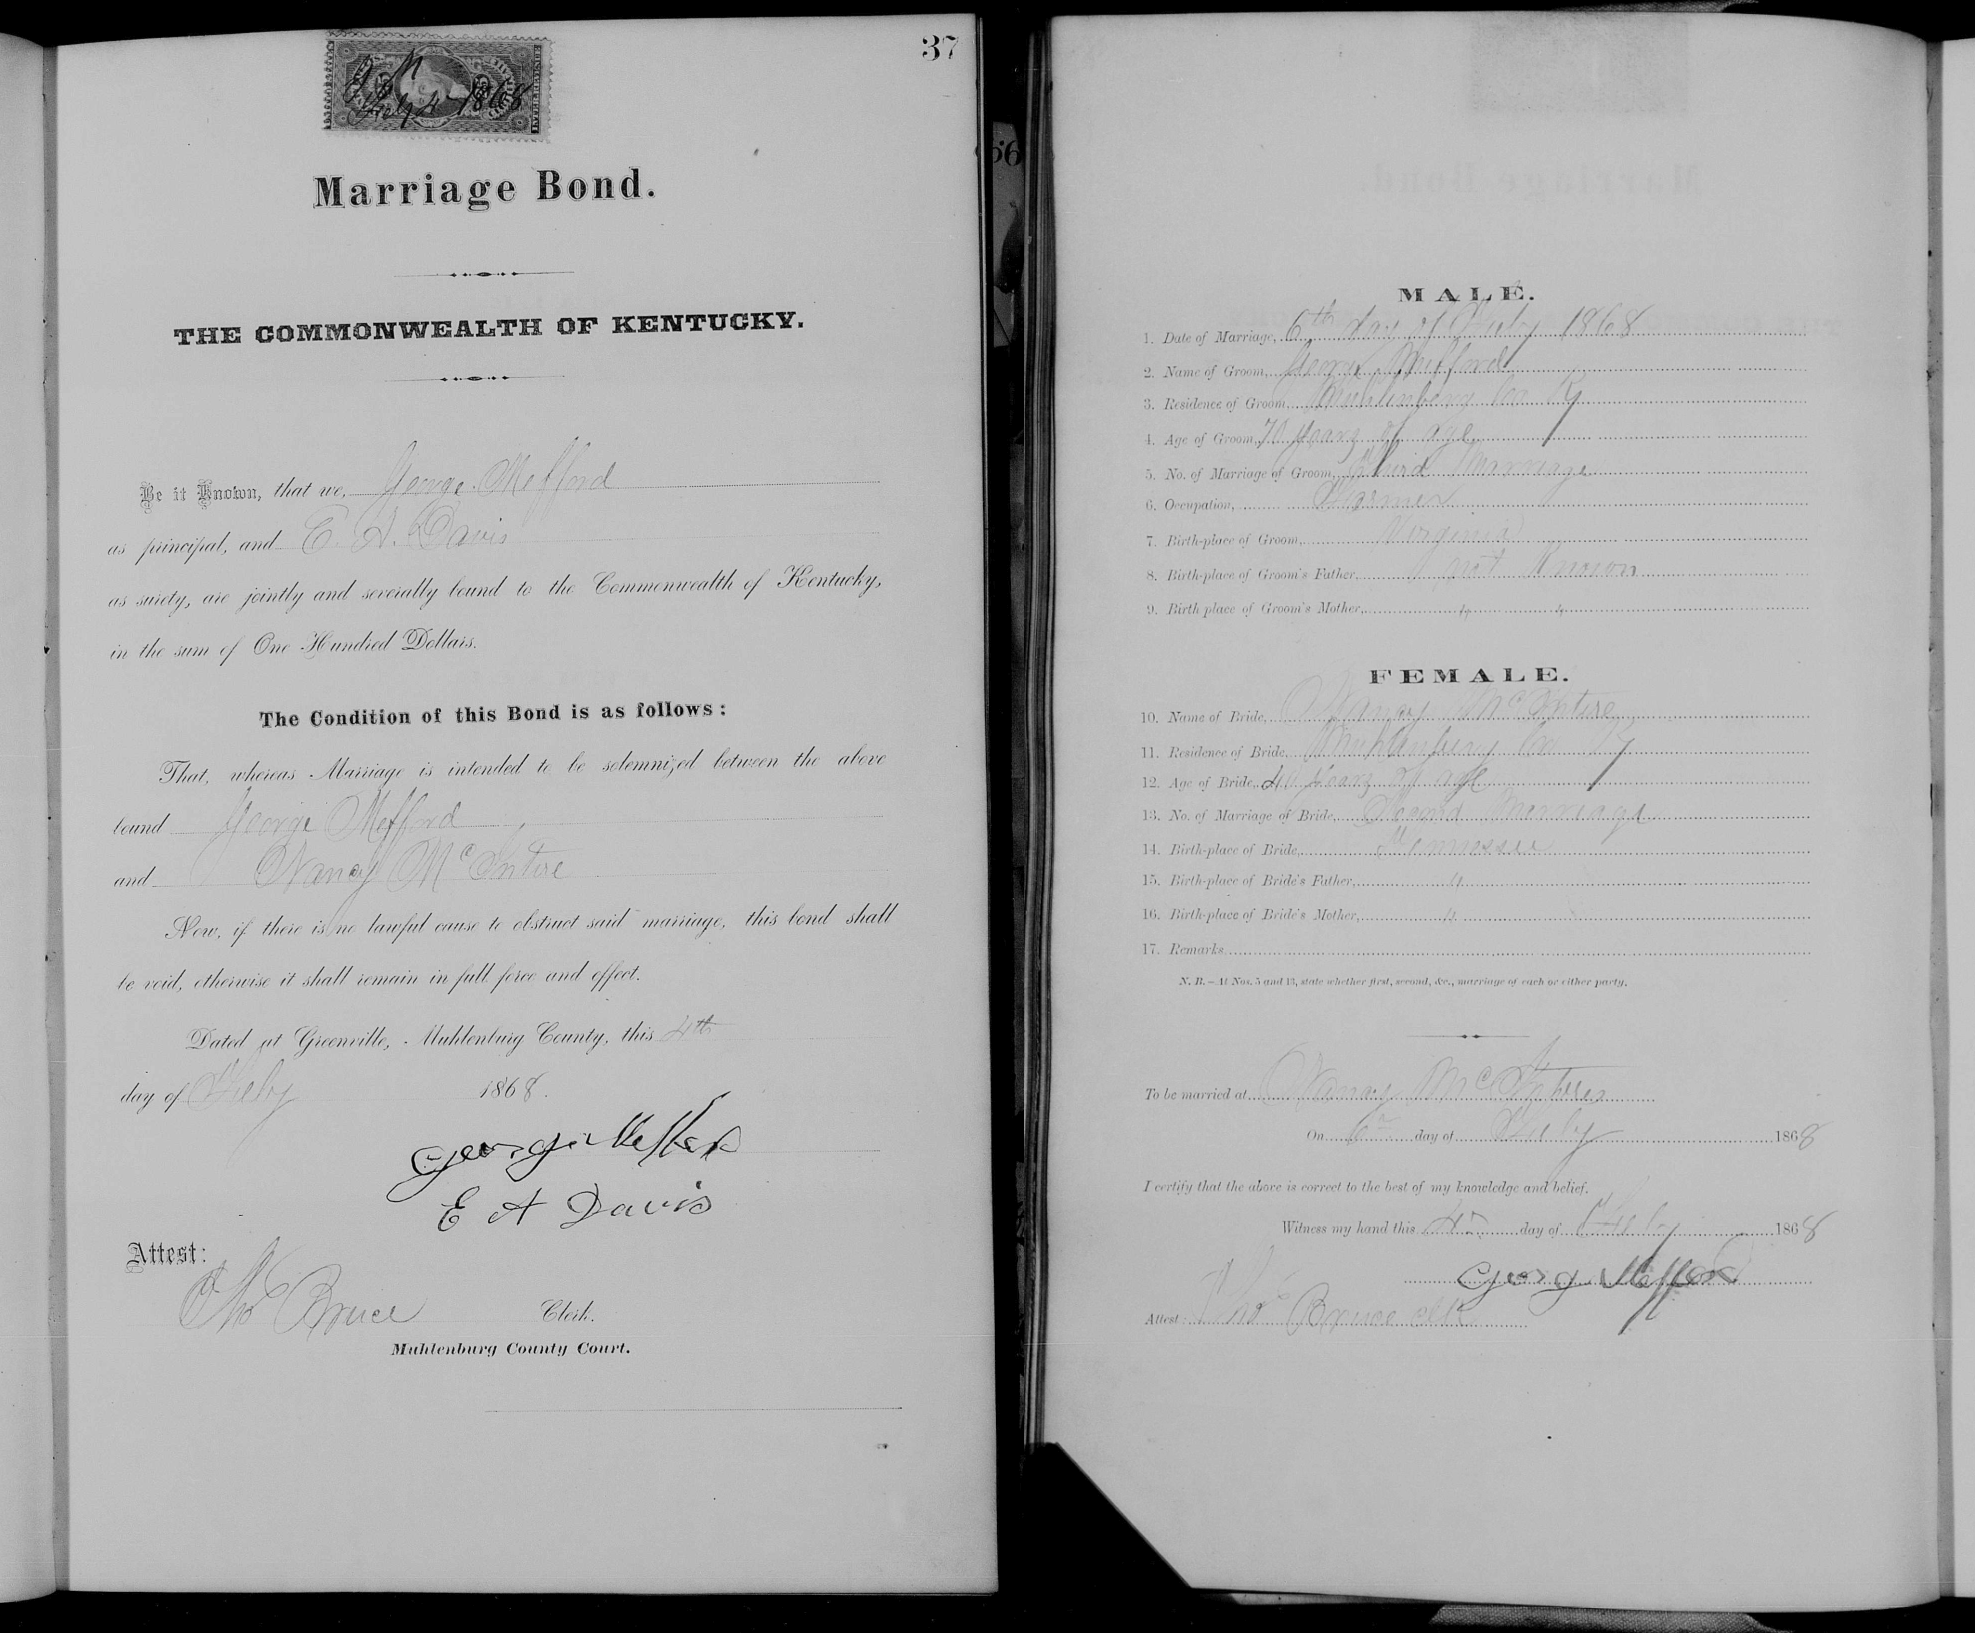 37
G M
Feby 4 1868
Marriage Bond.
THE COMMONWEALTH OF KENTUCKY.
Be it Known, that we, George Mefford
as principal, and E. A. Davis
as surety, are jointly and severally bound to the Commonwealth of Kentucky,
in the sum of One Hundred Dollars.
The Condition of this Bond is as follows:
That, whereas Marriage is intended to be solemnized between the above
bound George Mefford
and Nancy McIntire
Now, if there is no lawful cause to obstruct said marriage, this bond shall
be void, otherwise it shall remain in full force and effect.
Dated at Greenville, Muhlenburg County, this 4th
day of Feby 1868.
George Mefford
E A Davis
Attest:
Tho Bruce Clerk.
Muhlenburg County Court.
56
MALE.
1. Date of Marriage, 6th day of Feby 1868
2. Name of Groom, George Mefford
3. Residence of Groom, Muhlenburg Co Ky
4. Age of Groom, 70 years of age
5. No. of Marriage of Groom, Third Marriage
6. Occupation, Farmer
7. Birth-place of Groom, Virginia
8. Birth-place of Groom's Father, not Known
9. Birth place of Groom's Mother, " "
FEMALE.
10. Name of Bride, Nancy McIntire
11. Residence of Bride, Muhlenburg Co Ky
12. Age of Bride, years of age
13. No. of Marriage of Bride, Second Marriage
14. Birth-place of Bride, Tennessee
15. Birth-place of Bride's Father, "
16. Birth-place of Bride's Mother, "
17. Remarks
N. B.—At Nos. 5 and 13, state whether first, second, &c., marriage of each or either party.
To be married at Nancy McIntires
On 6th day of Feby 1868
I certify that the above is correct to the best of my knowledge and belief.
Witness my hand this 4th day of Feby 1868
George Mefford
Attest: Thos Bruce clk